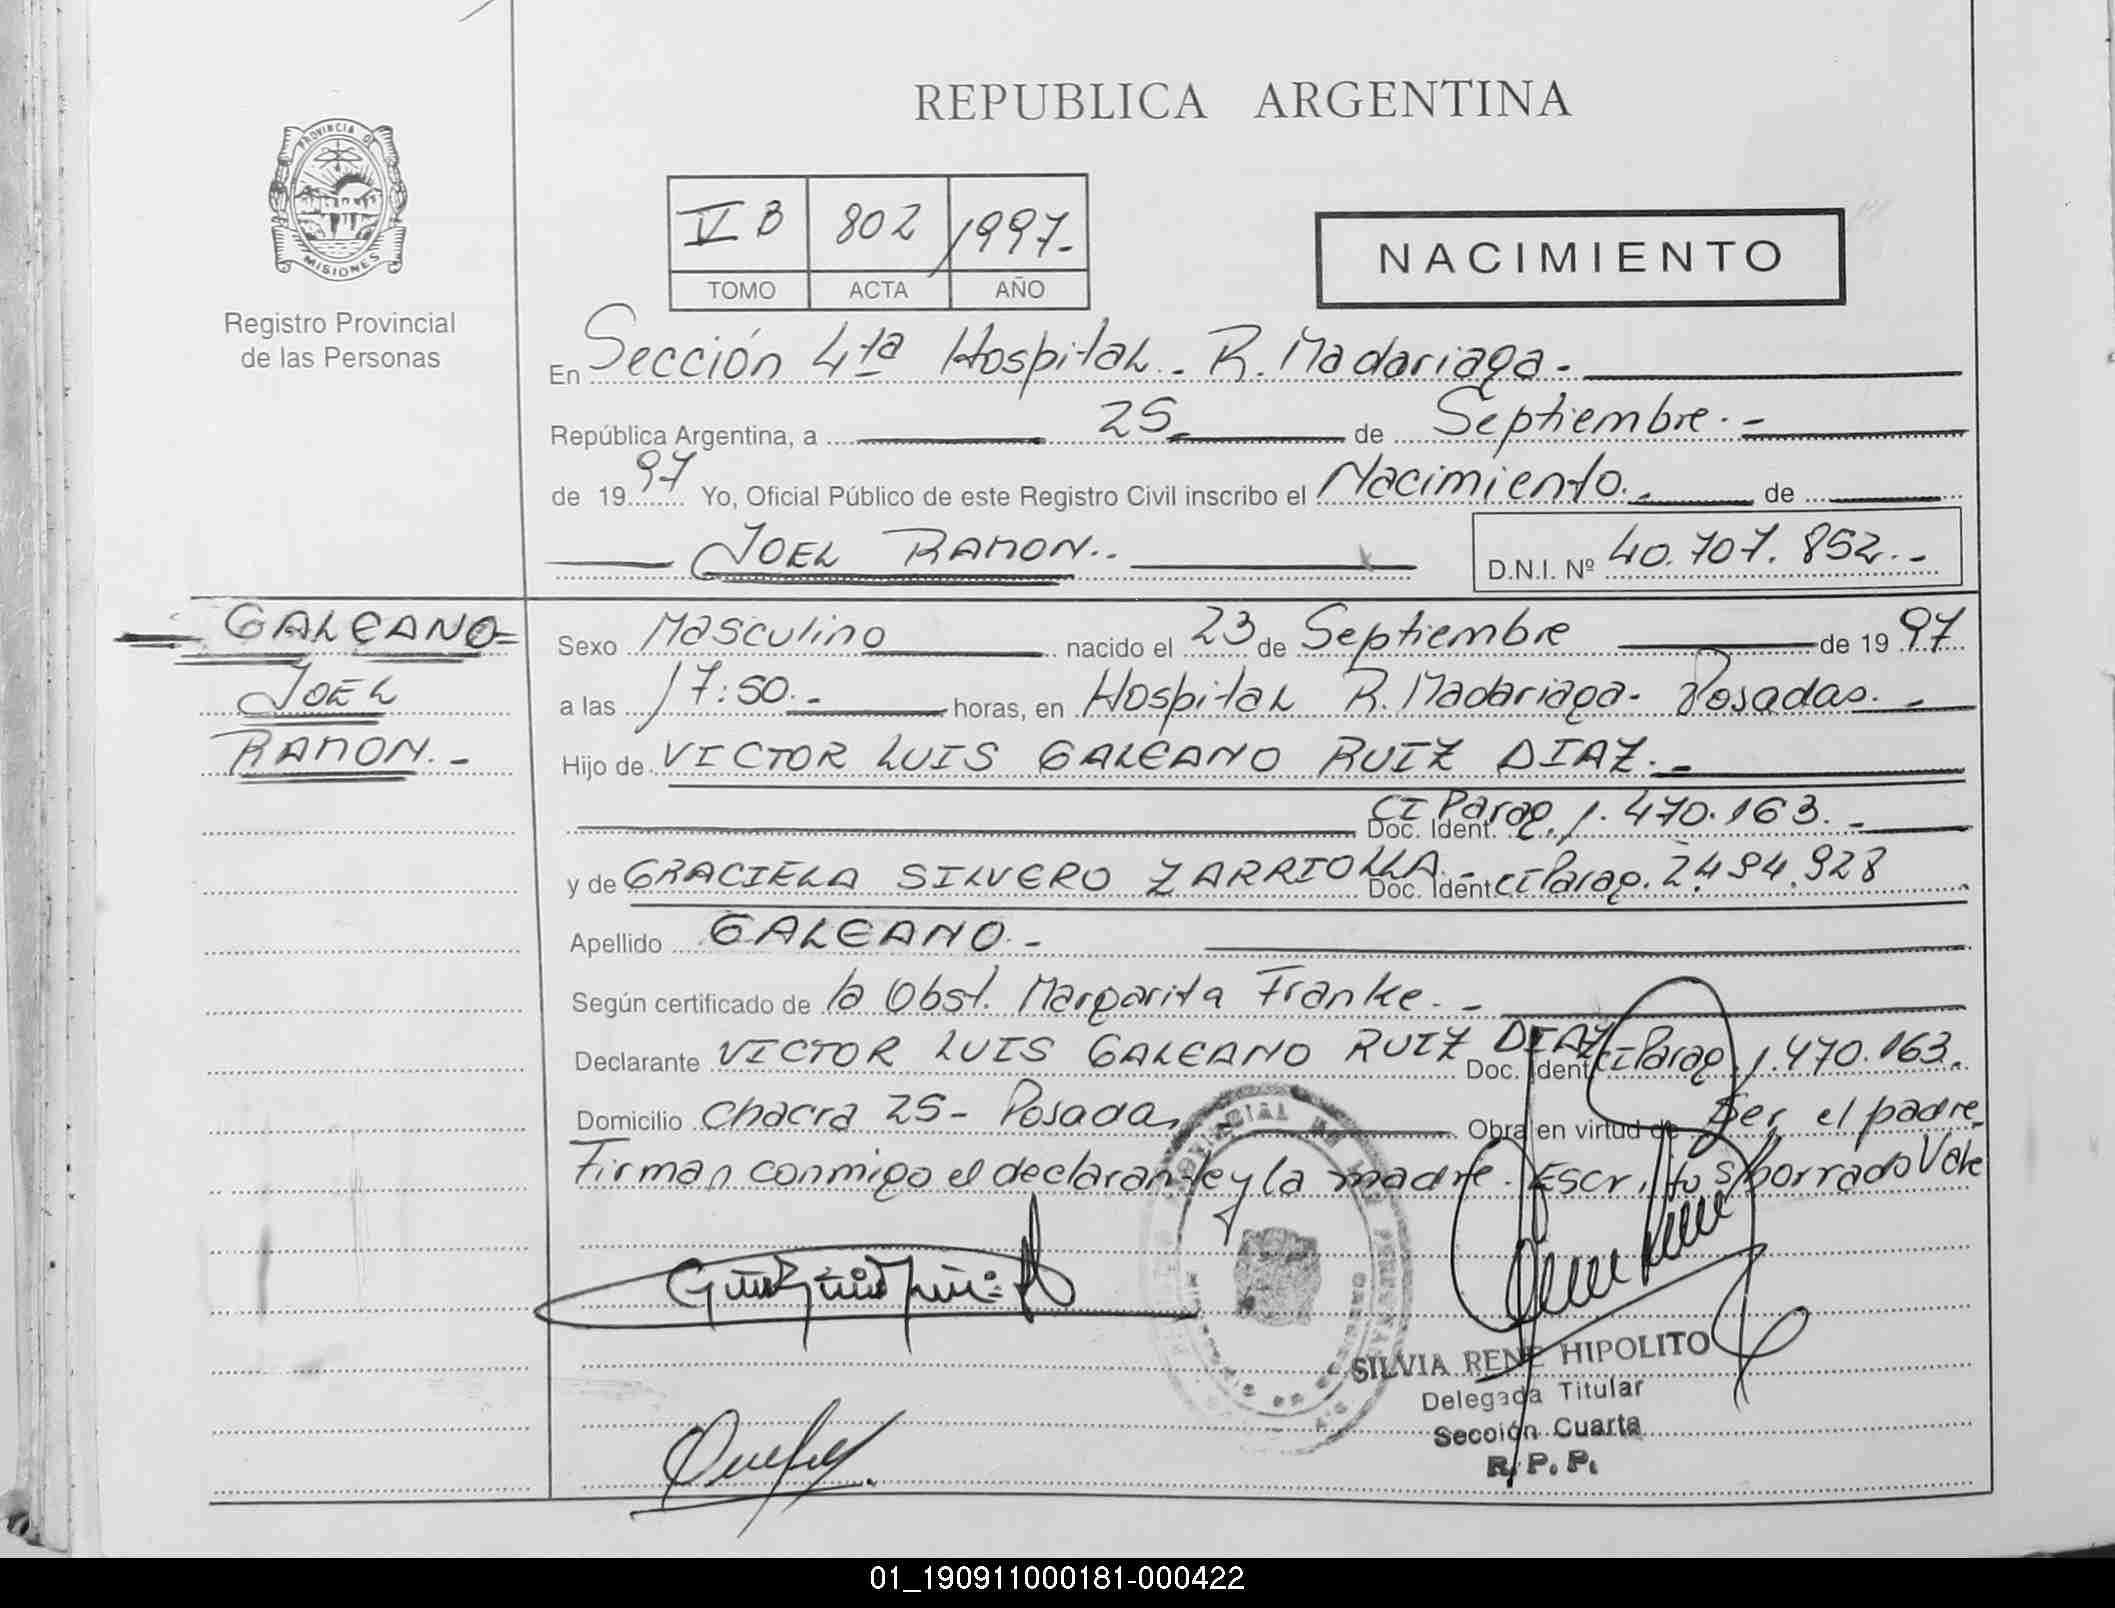 REPUBLICA ARGENTINA
PROVINCIA DE
MISIONES
Registro Provincial
de las Personas
V B 802 1997.-
TOMO ACTA AÑO
NACIMIENTO
En Sección 4ta Hospital - R. Madariaga.-
República Argentina, a 25 de Septiembre.-
de 1997 Yo, Oficial Público de este Registro Civil inscribo el Nacimiento.- de
JOEL RAMON..
D.N.I. Nº 40.707.852.-
GALEANO
JOEL
RAMON.-
Sexo Masculino nacido el 23 de Septiembre de 1997
a las 17:50.- horas, en Hospital R. Madariaga - Posadas.-
Hijo de VICTOR LUIS GALEANO RUIZ DIAZ.-
Doc. Ident. CI Parag. 1.470.163.-
y de GRACIELA SILVERO ZARRIOLLA.- Doc. Ident CI Parag. 2.494.928
Apellido GALEANO.-
Según certificado de la Obst. Margarita Franke.-
Declarante VICTOR LUIS GALEANO RUIZ DIAZ Doc. Ident CI Parag. 1.470.163.
Domicilio Chacra 25- Posadas Obra en virtud de Ser el padre.
Firman conmigo el declarante y la madre. Escrito s/borrado Vale
SILVIA RENE HIPOLITO
Delegada Titular
Sección Cuarta
R. P. P.
01_190911000181-000422